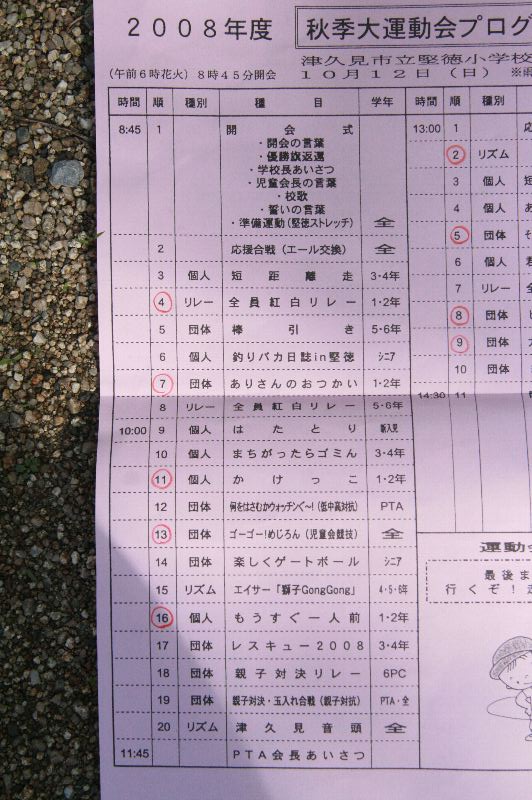 2008年度 秋季大運動会プログ
津久見市立堅徳小学校
(午前6時花火) 8時45分開会 10月12日(日) ※雨
時間 順 種別 種目 学年
8:45 1 開会式 全
・開会の言葉
・優勝旗返還
・学校長あいさつ
・児童会長の言葉
・校歌
・誓いの言葉
・準備運動(堅徳ストレッチ)
2 応援合戦(エール交換) 全
3 個人 短距離走 3・4年
4 リレー 全員紅白リレー 1・2年
5 団体 棒引き 5・6年
6 個人 釣りバカ日誌in堅徳 シニア
7 団体 ありさんのおつかい 1・2年
8 リレー 全員紅白リレー 5・6年
10:00 9 個人 はたとり 新入児
10 個人 まちがったらゴミん 3・4年
11 個人 かけっこ 1・2年
12 団体 何をはさむかウォッチンぐ~!(低中高対抗) PTA
13 団体 ゴーゴー!めじろん(児童会競技) 全
14 団体 楽しくゲートボール シニア
15 リズム エイサー「獅子GongGong」 4・5・6年
16 個人 もうすぐ一人前 1・2年
17 団体 レスキュー2008 3・4年
18 団体 親子対決リレー 6PC
19 団体 親子対決・玉入れ合戦(親子対抗) PTA・全
20 リズム 津久見音頭 全
11:45 PTA会長あいさつ
時間 順 種別
13:00 1 応
2 リズム
3 個人 短
4 個人 あ
5 団体 そ
6 個人
7 リレー 全
8 団体
9 団体
10 団体
14:30 11
運動会
最後ま
行くぞ!